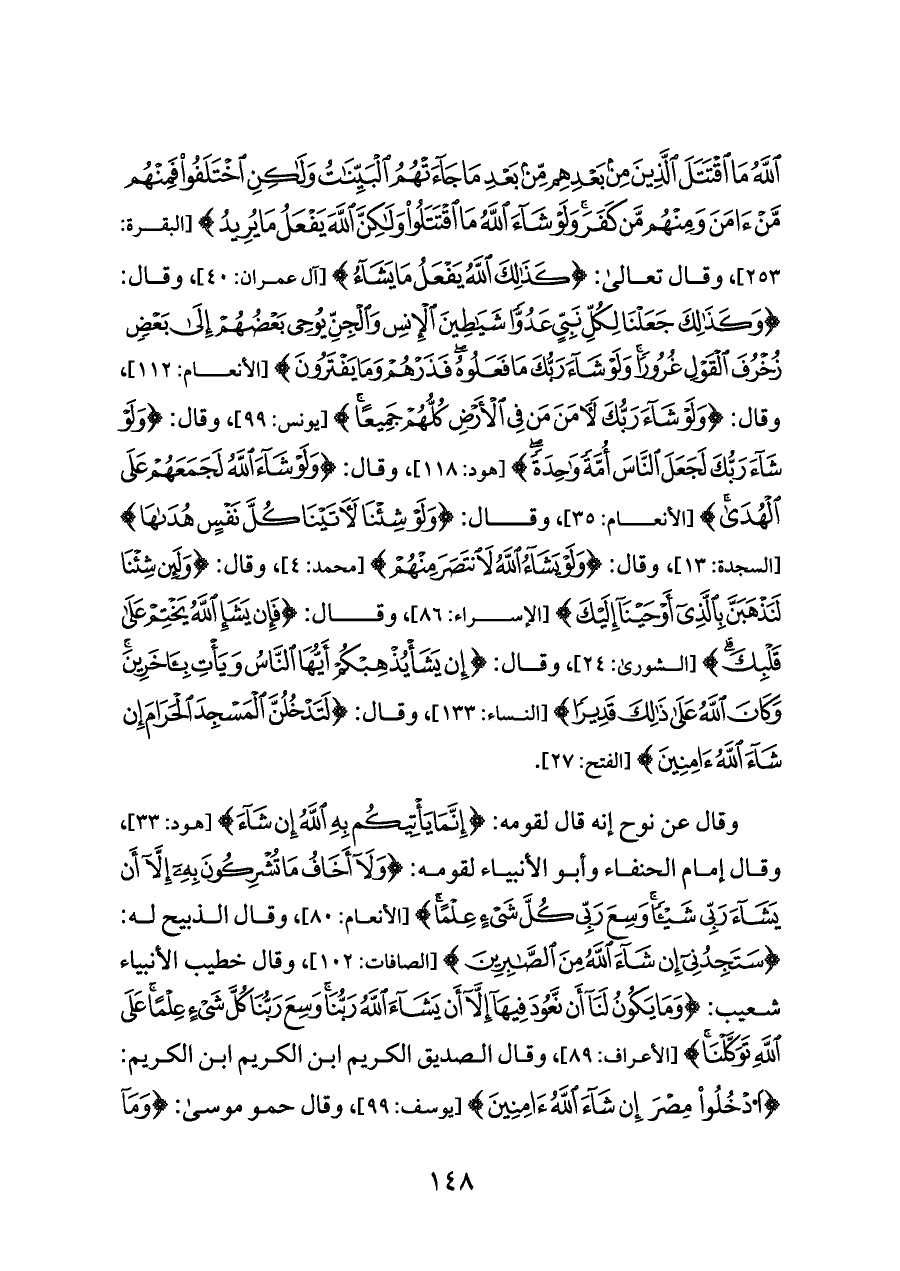 ٱللَّهُ مَا ٱقْتَتَلَ ٱلَّذِينَ مِنۢ بَعْدِهِم مِّنۢ بَعْدِ مَا جَآءَتْهُمُ ٱلْبَيِّنَٰتُ وَلَٰكِنِ ٱخْتَلَفُوا۟ فَمِنْهُم
مَّنْ ءَامَنَ وَمِنْهُم مَّن كَفَرَ ۚ وَلَوْ شَآءَ ٱللَّهُ مَا ٱقْتَتَلُوا۟ وَلَٰكِنَّ ٱللَّهَ يَفْعَلُ مَا يُرِيدُ ﴾ [البقرة:
٢٥٣]، وقال تعالىٰ: ﴿ كَذَٰلِكَ ٱللَّهُ يَفْعَلُ مَا يَشَآءُ ﴾ [آل عمران: ٤٠]، وقال:
﴿ وَكَذَٰلِكَ جَعَلْنَا لِكُلِّ نَبِىٍّ عَدُوًّا شَيَٰطِينَ ٱلْإِنسِ وَٱلْجِنِّ يُوحِى بَعْضُهُمْ إِلَىٰ بَعْضٍ
زُخْرُفَ ٱلْقَوْلِ غُرُورًا ۚ وَلَوْ شَآءَ رَبُّكَ مَا فَعَلُوهُ ۖ فَذَرْهُمْ وَمَا يَفْتَرُونَ ﴾ [الأنعام: ١١٢]،
وقال: ﴿ وَلَوْ شَآءَ رَبُّكَ لَءَامَنَ مَن فِى ٱلْأَرْضِ كُلُّهُمْ جَمِيعًا ۚ ﴾ [يونس: ٩٩]، وقال: ﴿ وَلَوْ
شَآءَ رَبُّكَ لَجَعَلَ ٱلنَّاسَ أُمَّةً وَٰحِدَةً ۖ ﴾ [هود: ١١٨]، وقال: ﴿ وَلَوْ شَآءَ ٱللَّهُ لَجَمَعَهُمْ عَلَى
ٱلْهُدَىٰ ۚ ﴾ [الأنعام: ٣٥]، وقال: ﴿ وَلَوْ شِئْنَا لَءَاتَيْنَا كُلَّ نَفْسٍ هُدَىٰهَا ﴾
[السجدة: ١٣]، وقال: ﴿ وَلَوْ يَشَآءُ ٱللَّهُ لَٱنتَصَرَ مِنْهُمْ ﴾ [محمد: ٤]، وقال: ﴿ وَلَئِن شِئْنَا
لَنَذْهَبَنَّ بِٱلَّذِىٓ أَوْحَيْنَآ إِلَيْكَ ﴾ [الإسراء: ٨٦]، وقال: ﴿ فَإِن يَشَإِ ٱللَّهُ يَخْتِمْ عَلَىٰ
قَلْبِكَ ۗ ﴾ [الشورىٰ: ٢٤]، وقال: ﴿ إِن يَشَأْ يُذْهِبْكُمْ أَيُّهَا ٱلنَّاسُ وَيَأْتِ بِـَٔاخَرِينَ ۚ
وَكَانَ ٱللَّهُ عَلَىٰ ذَٰلِكَ قَدِيرًا ﴾ [النساء: ١٣٣]، وقال: ﴿ لَتَدْخُلُنَّ ٱلْمَسْجِدَ ٱلْحَرَامَ إِن
شَآءَ ٱللَّهُ ءَامِنِينَ ﴾ [الفتح: ٢٧].
وقال عن نوح إنه قال لقومه: ﴿ إِنَّمَا يَأْتِيكُم بِهِ ٱللَّهُ إِن شَآءَ ﴾ [هود: ٣٣]،
وقال إمام الحنفاء وأبو الأنبياء لقومه: ﴿ وَلَآ أَخَافُ مَا تُشْرِكُونَ بِهِۦٓ إِلَّآ أَن
يَشَآءَ رَبِّى شَيْـًٔا ۗ وَسِعَ رَبِّى كُلَّ شَىْءٍ عِلْمًا ۗ ﴾ [الأنعام: ٨٠]، وقال الذبيح له:
﴿ سَتَجِدُنِىٓ إِن شَآءَ ٱللَّهُ مِنَ ٱلصَّٰبِرِينَ ﴾ [الصافات: ١٠٢]، وقال خطيب الأنبياء
شعيب: ﴿ وَمَا يَكُونُ لَنَآ أَن نَّعُودَ فِيهَآ إِلَّآ أَن يَشَآءَ ٱللَّهُ رَبُّنَا ۚ وَسِعَ رَبُّنَا كُلَّ شَىْءٍ عِلْمًا ۚ عَلَى
ٱللَّهِ تَوَكَّلْنَا ۚ ﴾ [الأعراف: ٨٩]، وقال الصديق الكريم ابن الكريم ابن الكريم:
﴿ ٱدْخُلُوا۟ مِصْرَ إِن شَآءَ ٱللَّهُ ءَامِنِينَ ﴾ [يوسف: ٩٩]، وقال حمو موسىٰ: ﴿ وَمَآ
١٤٨